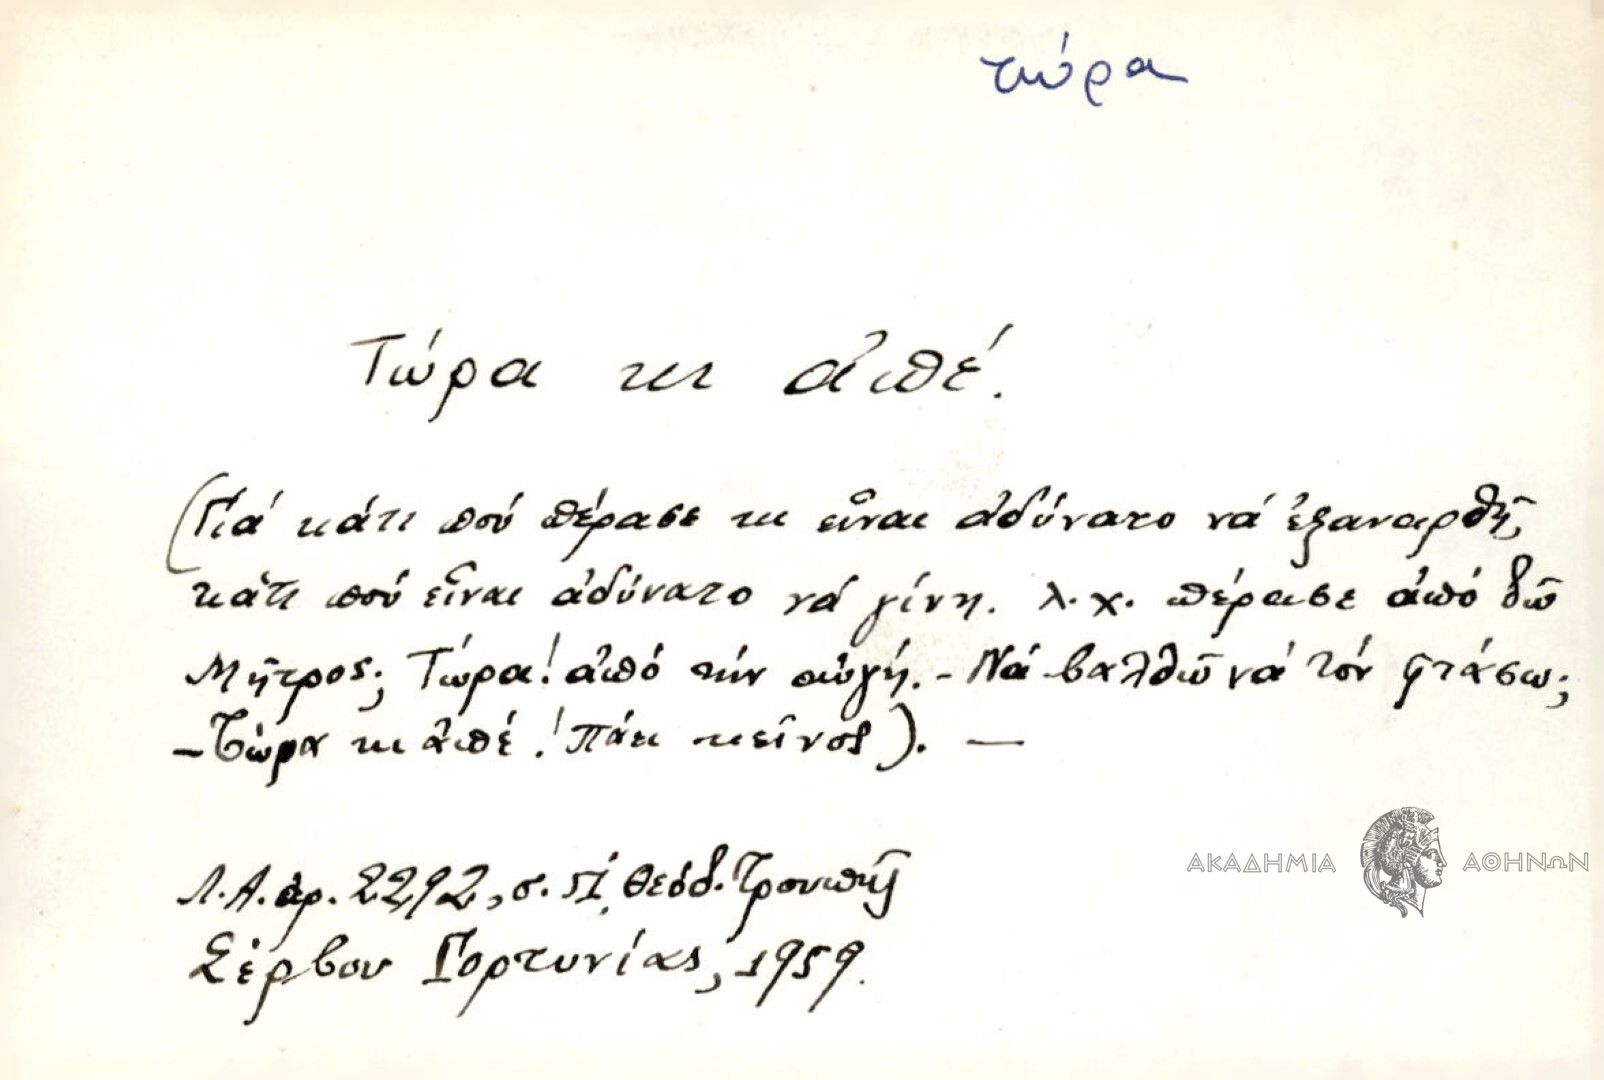 τώρα
Τώρα κι ἀπέ.
(Γιά κάτι πού πέρασε κι εἶναι ἀδύνατο νά ἐξαναρθῆ,
κάτι πού εἶναι ἀδύνατο νά γίνη. λ.χ. πέρασε ἀπό δῶ
Μῆτρος; Τώρα! ἀπό τήν αὐγή. - Νά βαλθῶ νά τόν φτάσω;
- Τώρα κι ἀπέ! Πάει κεῖνος). —
Λ.Α. ἀρ. 2292, σ. Θεόδ. Τρουπῆ
Σέρβου Γορτυνίας, 1959.
ΑΚΑΔΗΜΙΑ ΑΘΗΝΩΝ